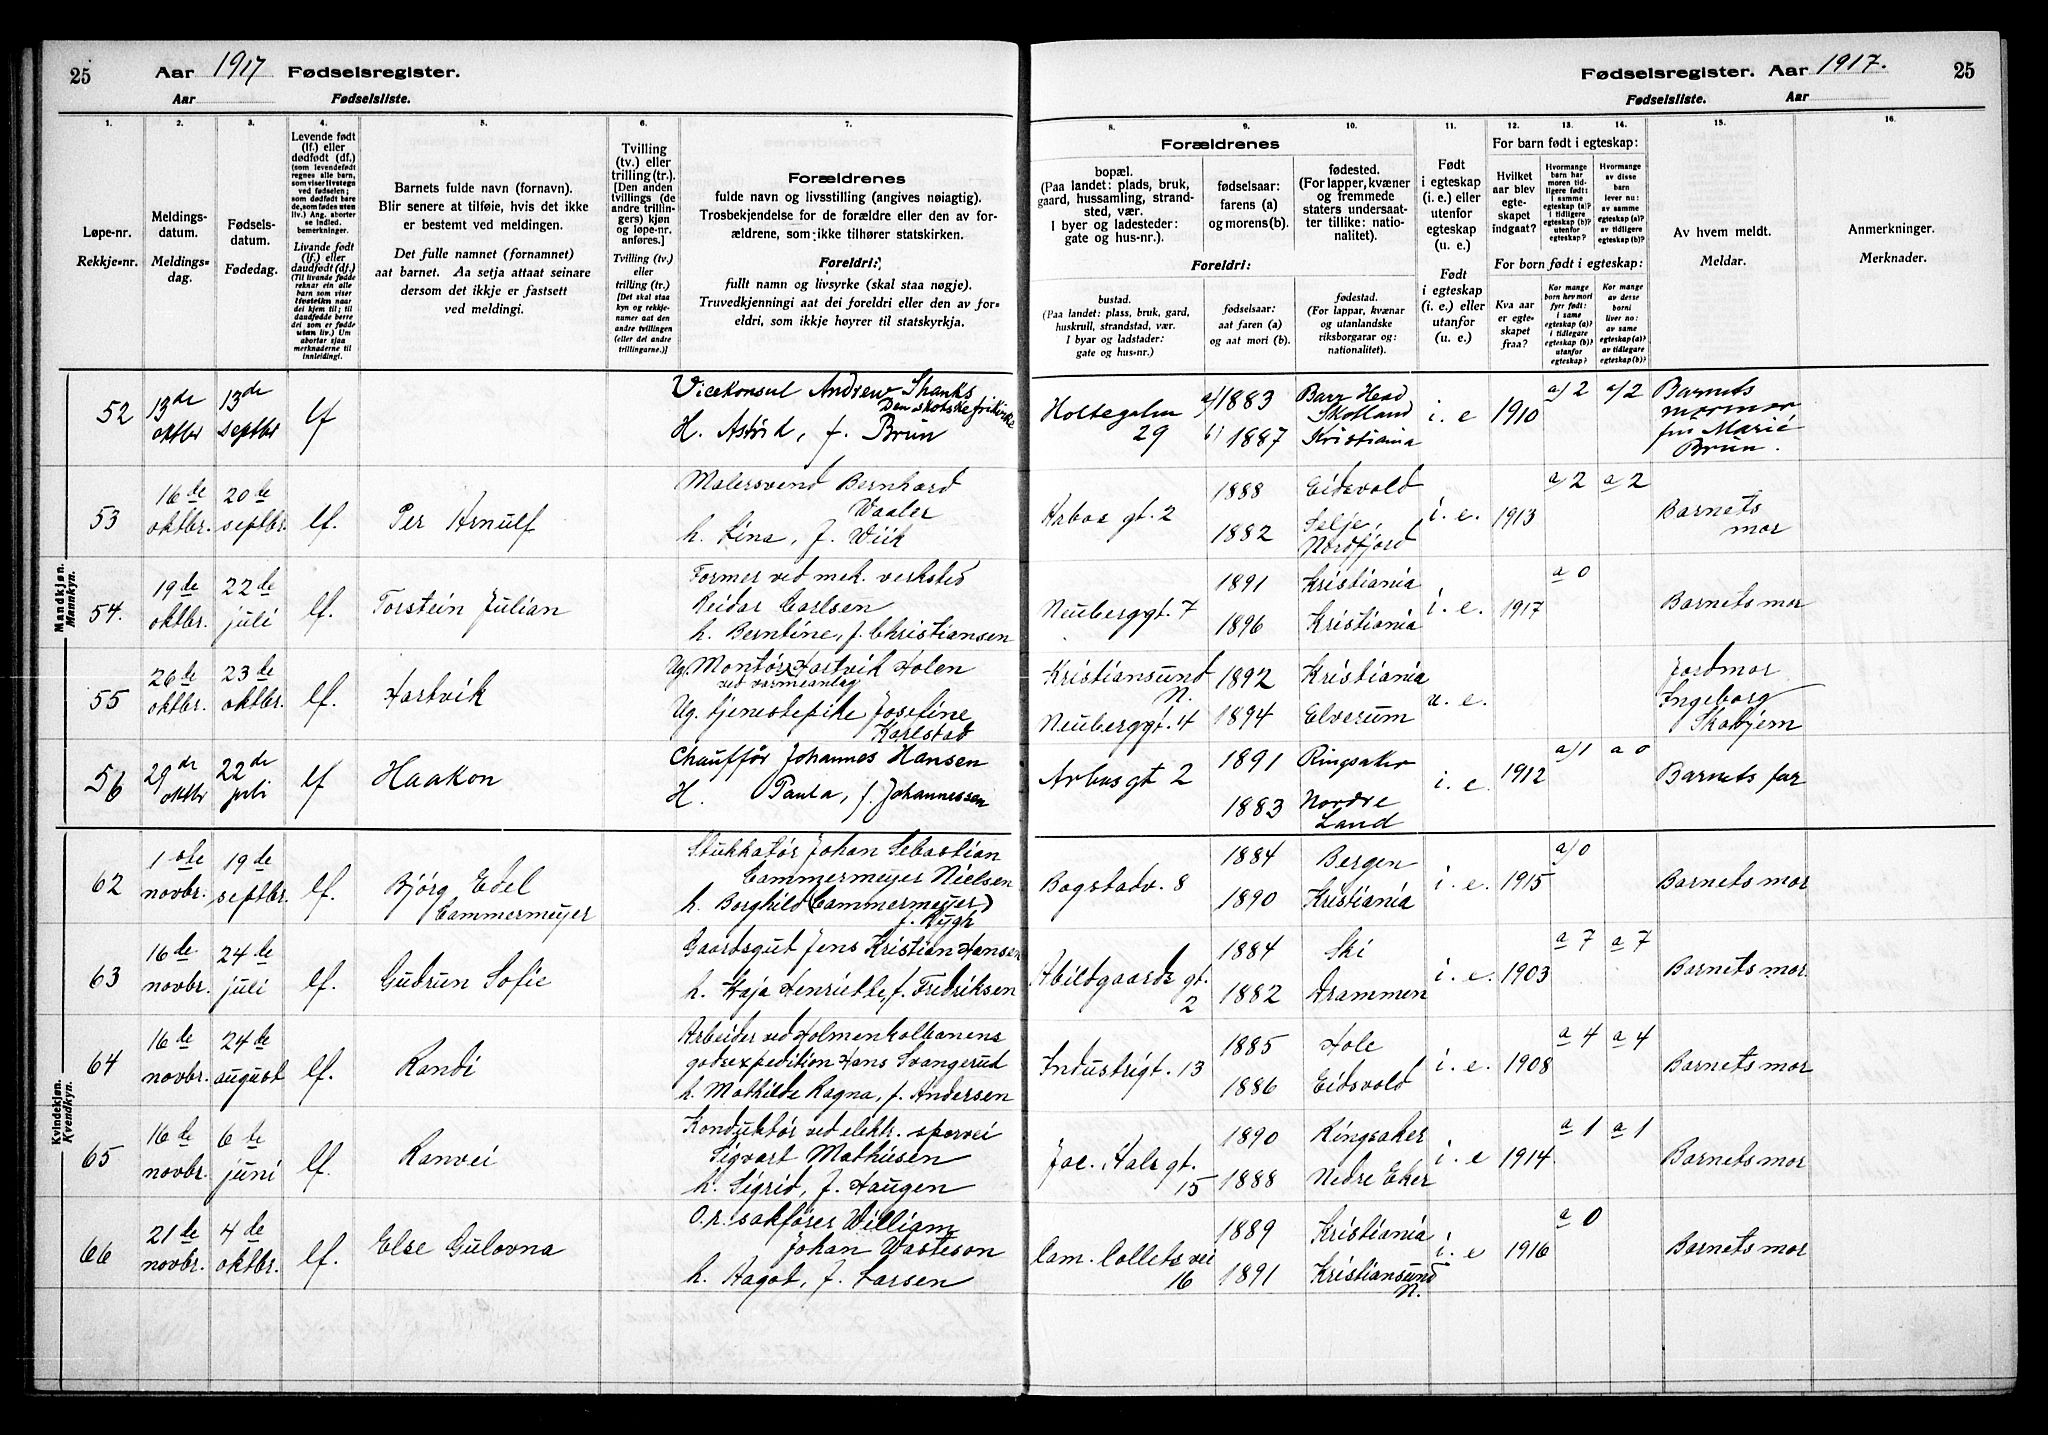 25 Aar 1917 Fødselsregister.
Aar Fødselsliste.
Fødselsregister. Aar 1917. 25
Fødselsliste. Aar
1. 2. 3. 4. 5. 6. 7.
Løpe-nr.
Rekkje-nr.
Meldings-
datum.
Meldings-
dag.
Fødsels-
datum.
Fødedag.
Levende født
(lf.) eller
dødfødt (df.)
(som levendefødt
regnes alle barn,
som viser livstegn
ved fødselen;
som dødfødt bare
de, som fødes uten
liv.) Ang. aborter
se indled.
bemerkninger.
Livande født
(lf.) eller
daudfødt (df.)
(Til livande fødde
reknar ein alle
born som viser
livsteikn naar
dei kjem til; til
daudfødde berre
dei som er fødde
utan liv.) Um
abortar sjaa
merknaderne til
innleiding!.
Barnets fulde navn (fornavn).
Blir senere at tilføie, hvis det ikke
er bestemt ved meldingen.
Det fulle namnet (fornamnet)
aat barnet. Aa setja attaat seinare
dersom det ikkje er fastsett
ved meldingi.
Tvilling
(tv.) eller
trilling (tr.).
[Den anden
tvillings (de
andre trillin-
gers) kjøn
og løpe-nr.
anføres.]
Tvilling (tv.)
eller
trilling (tr.)
[Det skal staa
kyn og rekkje-
numer aat den
andre tvillingen
(eller dei andre
trillingarne.)]
Forældrenes
fulde navn og livsstilling (angives nøiagtig).
Trosbekjendelse for de forældre eller den av for-
ældrene, som ikke tilhører statskirken.
Foreldri:
fullt namn og livsyrke (skal staa nøgje).
Truvedkjenningi aat dei foreldri eller den av for-
eldri, som ikkje høyrer til statskyrkja.
8. 9. 10. 11. 12. 13. 14. 15. 16.
Forældrenes
bopæl.
(Paa landet: plads, bruk,
gaard, hussamling, strand-
sted, vær.
I byer og ladesteder:
gate og hus-nr.).
fødselsaar:
farens (a)
og morens (b).
fødested.
(For lapper, kvæner
og fremmede
staters undersaat-
ter tillike: natio-
nalitet).
Foreldri:
bustad.
(Paa landet: plass, bruk, gard,
huskrull, strandstad, vær.
I byar og ladstader:
gate og hus-nr.)
fødselsaar:
aat faren (a)
og aat mori (b).
fødestad.
(For lappar, kvænar
og utanlandske
riksborgarar og:
nationalitet).
Født
i egteskap
(i. e.) eller
utenfor
egteskap
(u. e.)
Født
i egteskap
(i. e.) eller
utanfor
(u. e.)
For barn født i egteskap:
Hvilket
aar blev
egte-
skapet
indgaat?
Hvormange
barn har
moren tid-
ligere født:
i samme
egteskap (a)?
i tidligere
egteskap (b)?
utenfor
egteskap?
Hvormange
av disse
barn
lever nu:
av samme
egteskap (a)?
av tidligere
egteskap (b)?
For born født i egteskap:
Kva aar
er egte-
skapet
fraa?
Kor mange
born hev mori
fyrr født:
i same
egteskap (a)?
i tidlegare
egteskap (b)?
utanfor
egteskap?
Kor mange
av desse
borni
liver no:
av same
egteskap (a)?
av tidlegare
egteskap (b)?
Av hvem meldt.
Meldar.
Anmerkninger.
Merknader.
Mandkjøn.
Mannkyn.
52 13de oktbr 13de septbr lf
Vicekonsul Andrew Shanks
Den skotske frikirke
H. Astrid, f. Brun
Holtegaten 29 a) 1883 Barr Head Skotland
b) 1887 Kristiania
i. e 1910 a) 2 a) 2 Barnets mormor fru Marie Brun.
53 16de oktbr. 20de septbr. lf. Per Arnulf
Malersvend Bernhard
Waaler
h. Lina, f. Wiik
gt. 2 1888 Eidsvold
1882 Selje Nordfjord
i. e. 1913 a 2 a 2 Barnets mor
54. 19de oktbr. 22de juli lf. Torstein Julian
Former ved mek. verksted
Reidar Carlsen
h. Berntine, f. Christiansen
Neuberggt. 7 1891 Kristiania
1896 Kristiania
i. e. 1917 a 0 Barnets mor
55 26de oktbr. 23de oktbr. lf. Hartvik
Ug. Montør Hartvik Holen
ved varmeanlæg
Ug. tjenestepike Josefine
Karlstad
Kristiansund N. 1892 Kristiania
Neuberggt. 4 1894 Elverum
u. e. Jordmor Ingeborg
56 29de oktbr 22de juli lf Haakon
Chauffør Johannes Hansen
H. Paula, f. Johannessen
gt 2 1891 Ringsaker
1883 Nordre Land
i. e. 1912 a) 1 a 0 Barnets far
Kvindekjøn.
Kvendkyn.
62 1ste novbr. 19de septbr. lf. Bjørg Edel Cammermeyer
Stukkatør Johan Sebastian
Cammermeyer Nielsen
h. Borghild (Cammermeyer)
f. Rygh
Bogstadv. 8 1884 Bergen
1890 Kristiania
i. e. 1915 a) 0 Barnets mor
63 16de novbr. 24de juli lf. Gudrun Sofie
Gaardsgut Jens Kristian Hansen
h. Kaja Henriette, f. Fredriksen
Abildgaards gt. 2 1884 Ski
1882 Drammen
i. e. 1903 a 7 a 7 Barnets mor
64 16de novbr. 24de august lf. Randi
Arbeider ved Holmenkolbanens
godsexpedition Hans Svangerud
h. Mathilde Ragna, f. Andersen
Industrigt. 13 1885 Hole
1886 Eidsvold
i. e. 1908 a 4 a 4 Barnets mor
65 16de novbr. 6te juni lf. Ranvei
Konduktør ved elektr. sporvei
Sigvart Mathisen
h. Sigrid, f. Haugen
Jac. Aals gt. 15 1890 Ringsaker
1888 Nedre Eker
i. e 1914 a 1 a 1 Barnets mor
66 21de novbr. 4de oktbr. lf. Else Gulovna
O.r. sakfører William
Johan Wasteson
h. Aagot, f. Larsen
Cam. Collets vei 16 1889 Kristiania
1891 Kristiansund N.
i. e 1916 a 0 Barnets mor